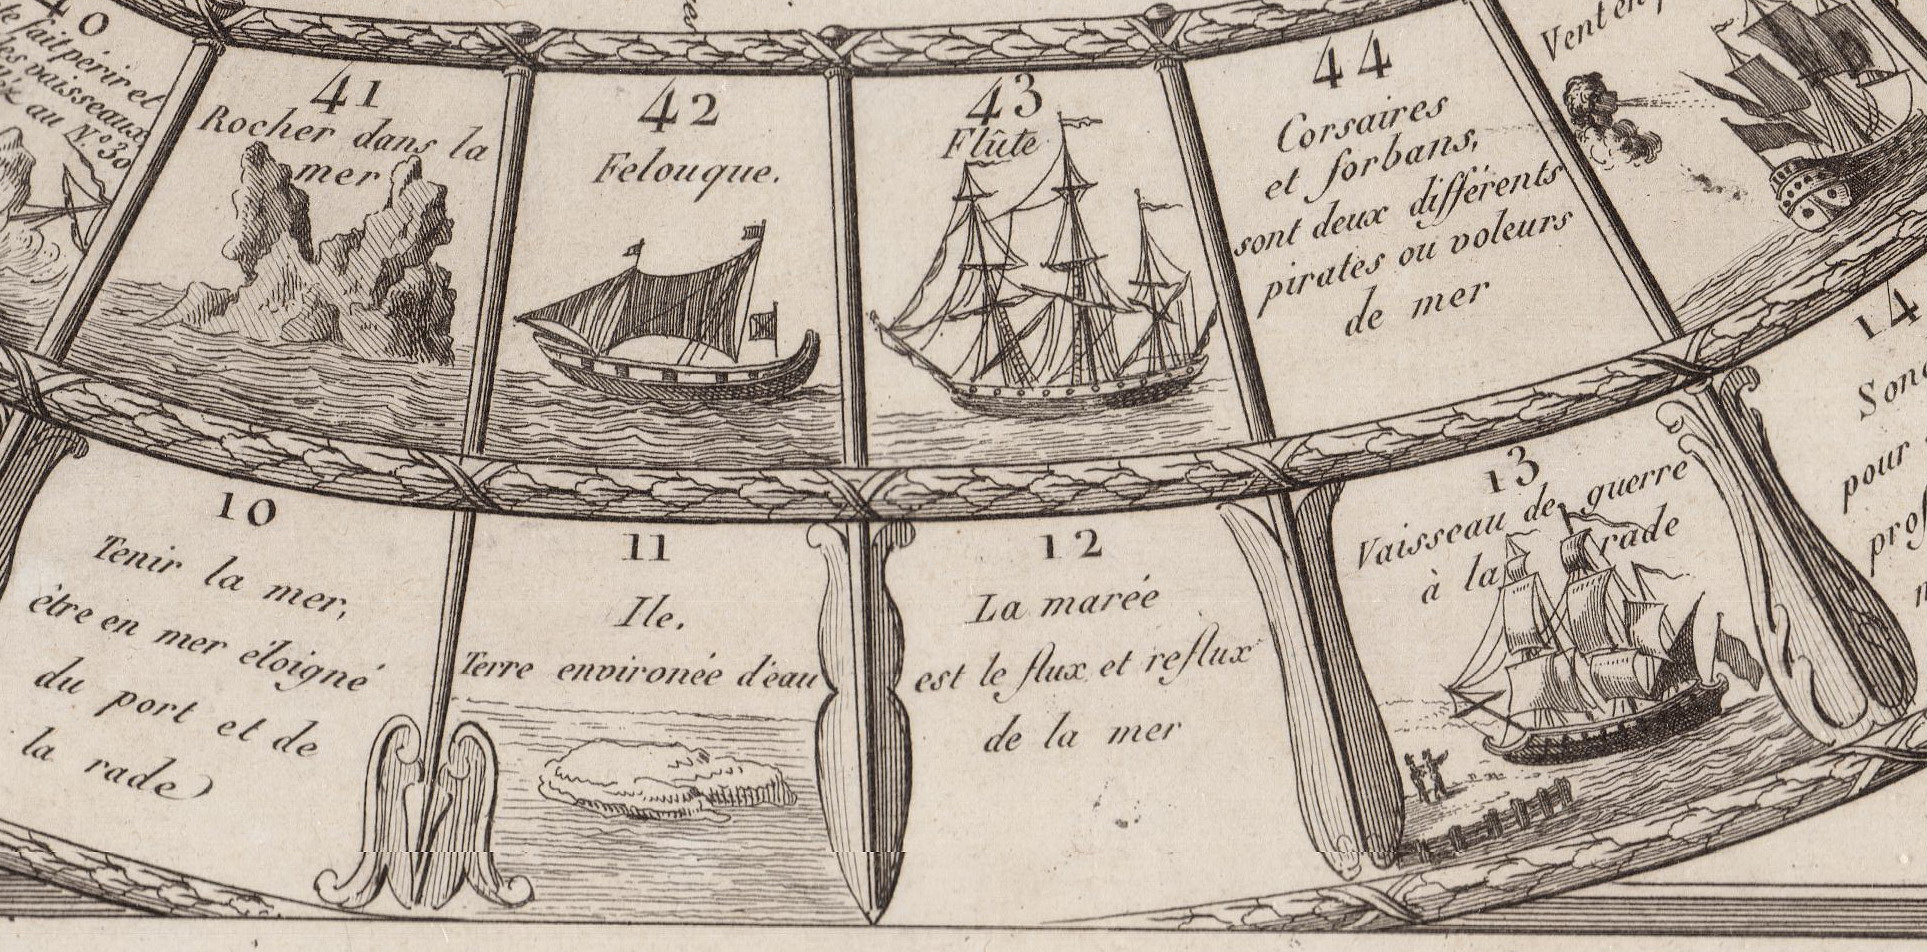 40
fait périr et
vaisseaux
au N.º 30
41
Rocher dans la
mer
42
Felouque.
43
Flûte
44
Corsaires
et forbans,
sont deux différents
pirates ou voleurs
de mer
Vent en
10
Tenir la mer,
être en mer éloigné
du port et de
la rade
11
Ile.
Terre environée d'eau
12
La marée
est le flux et reflux
de la mer
13
Vaisseau de guerre
à la rade
14
pour